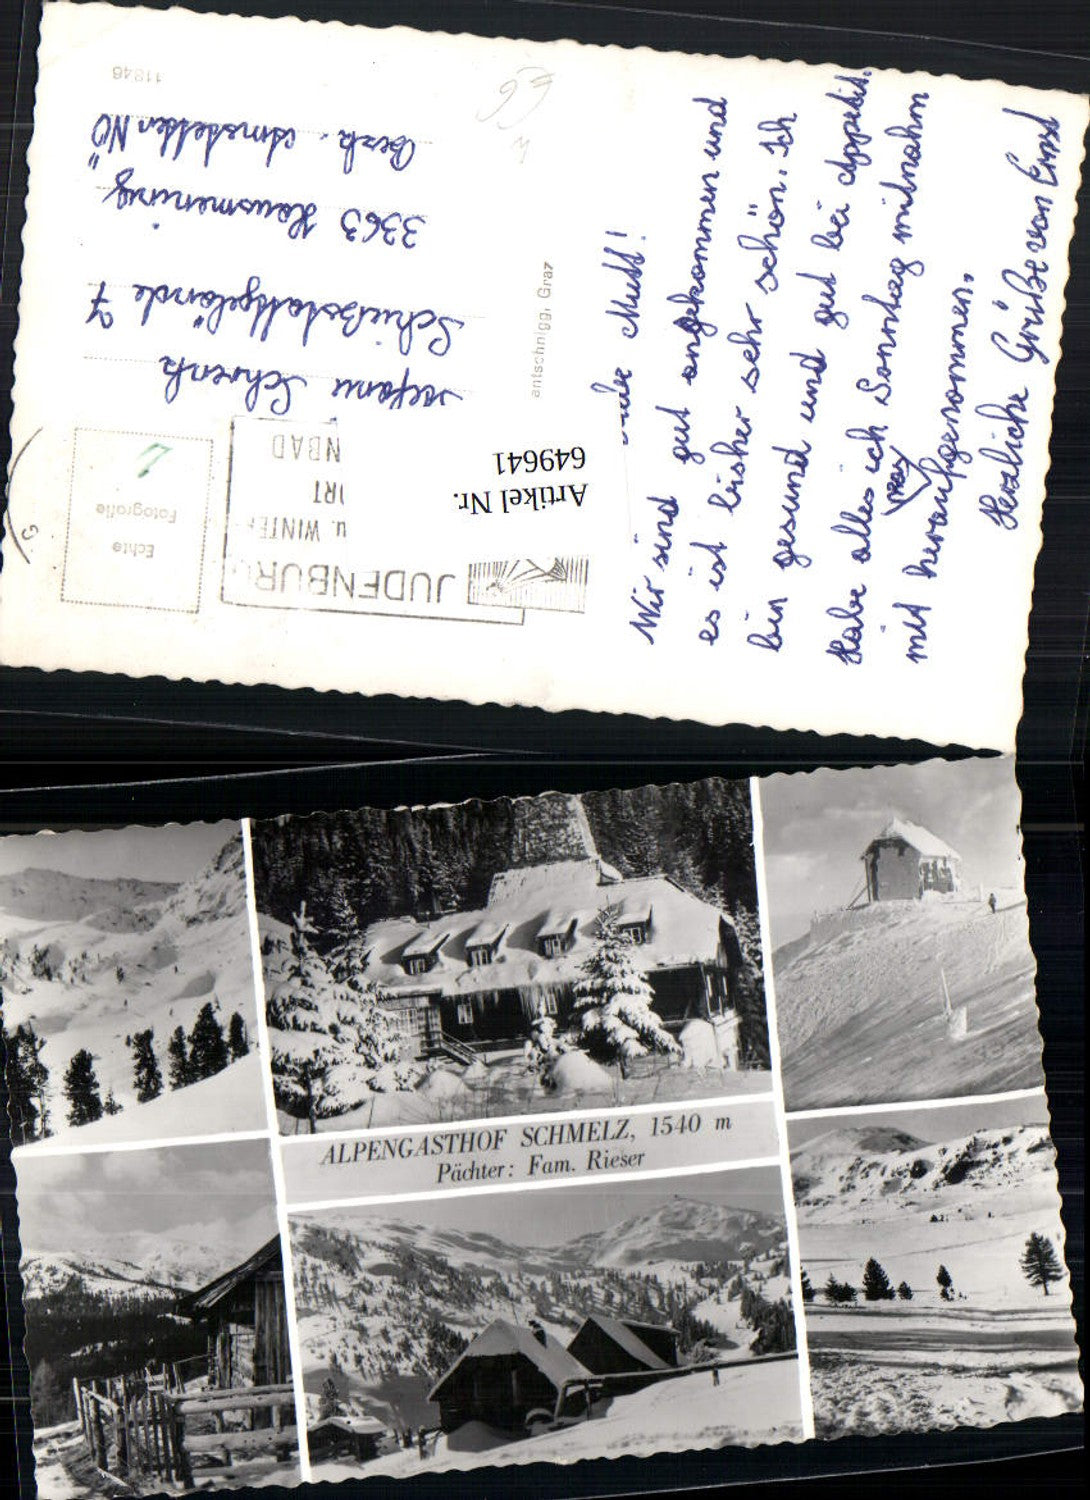 11846
Liebe Mutti!
Wir sind gut angekommen und
es ist bisher sehr schön. Ich
bin gesund und gut bei Appetit.
Habe alles ich Sonntag mitnahm
was
mit heraufgenommen.
Herzliche Grüße von Ernst
antschnigg, Graz
JUDENBUR
u. WINTE
ORT
NBAD
Echte
Fotografie
Schwenk
Schießstattgelände 7
3363 Hausmening
Bezh. Amstetten NÖ
Artikel Nr.
649641
ALPENGASTHOF SCHMELZ, 1540 m
Pächter: Fam. Rieser